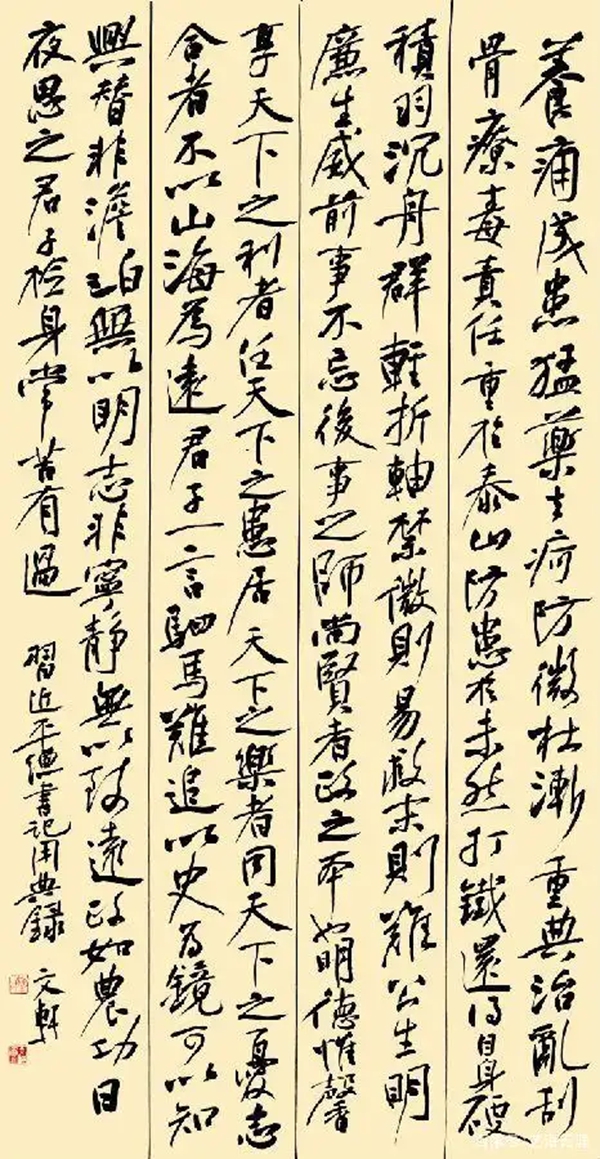 養痈成患猛藥去疴防微杜漸重典治亂刮
骨療毒責任重於泰山防患於未然打鐵還得自身硬
積羽沉舟群輕折軸禁微則易救末則難公生明
廉生威前事不忘後事之師尚賢者政之本也明德惟馨
享天下之利者任天下之患居天下之樂者同天下之憂志
合者不以山海為遠君子一言駟馬難追以史為鏡可以知
興替非澹泊無以明志非寧靜無以致遠政如農功日
夜思之君子檢身常若有過
習近平總書記用典錄 文軒